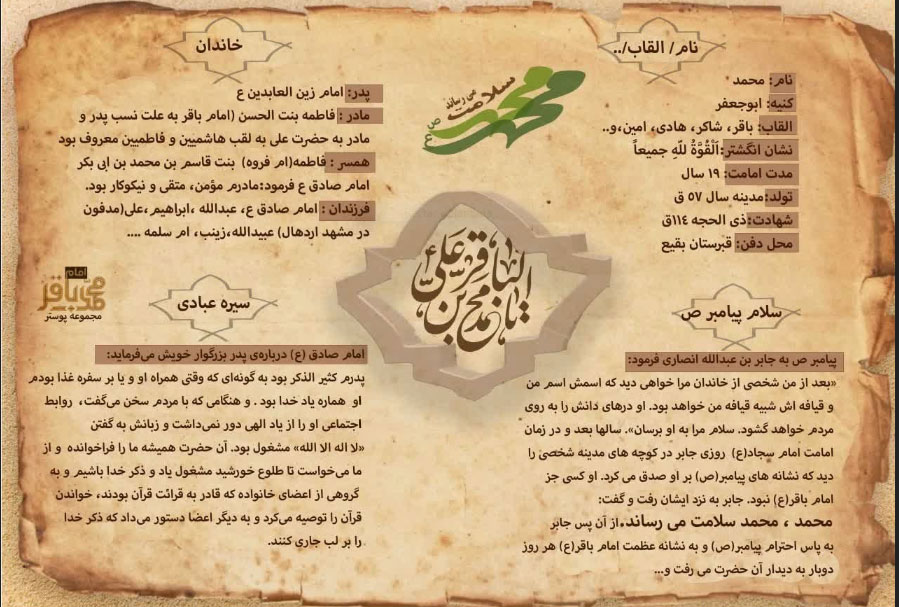 نام/ القاب/..
نام: محمد
کنیه: ابوجعفر
القاب: باقر، شاکر، هادی، امین،و..
نشان انگشتر:اَلْقُوَّةُ لِلّهِ جمیعاً
مدت امامت: ۱۹ سال
تولد:مدینه سال ۵۷ ق
شهادت:ذی الحجه ۱۱٤ق
محل دفن: قبرستان بقیع
محمد
محمد ص
سلامت
می رساند
خاندان
پدر: امام زین العابدین ع
مادر : فاطمه بنت الحسن (امام باقر به علت نسب پدر و
مادر به حضرت علی به لقب هاشمیین و فاطمیین معروف بود
همسر : فاطمه(ام فروه) بنت قاسم بن محمد بن ابی بکر
امام صادق ع فرمود:مادرم مؤمن، متقی و نیکوکار بود.
فرزندان : امام صادق ع، عبدالله ،ابراهیم،علی(مدفون
در مشهد اردهال) عبیدالله،زینب، ام سلمه ....
یا محمد بن علی الباقر
سلام پیامبر ص
پیامبر ص به جابر بن عبدالله انصاری فرمود:
«بعد از من شخصی از خاندان مرا خواهی دید که اسمش اسم من
و قیافه اش شبیه قیافه من خواهد بود. او درهای دانش را به روی
مردم خواهد گشود. سلام مرا به او برسان». سالها بعد و در زمان
امامت امام سجاد(ع) روزی جابر در کوچه های مدینه شخصی را
دید که نشانه های پیامبر(ص) بر او صدق می کرد. او کسی جز
امام باقر(ع) نبود. جابر به نزد ایشان رفت و گفت:
محمد ، محمد سلامت می رساند.از آن پس جابر
به پاس احترام پیامبر(ص) و به نشانه عظمت امام باقر(ع) هر روز
دوبار به دیدار آن حضرت می رفت و...
امام
محمد باقر
مجموعه پوستر
سیره عبادی
امام صادق (ع) درباره‌ی پدر بزرگوار خویش می‌فرماید:
پدرم کثیر الذکر بود به گونه‌ای که وقتی همراه او و یا بر سفره غذا بودم
او هماره یاد خدا بود . و هنگامی که با مردم سخن می‌گفت، روابط
اجتماعی او را از یاد الهی دور نمی‌داشت و زبانش به گفتن
«لا اله الا الله» مشغول بود. آن حضرت همیشه ما را فراخوانده و از
ما می‌خواست تا طلوع خورشید مشغول یاد و ذکر خدا باشیم و به
گروهی از اعضای خانواده که قادر به قرائت قرآن بودند، خواندن
قرآن را توصیه می‌کرد و به دیگر اعضا دستور می‌داد که ذکر خدا
را بر لب جاری کنند.